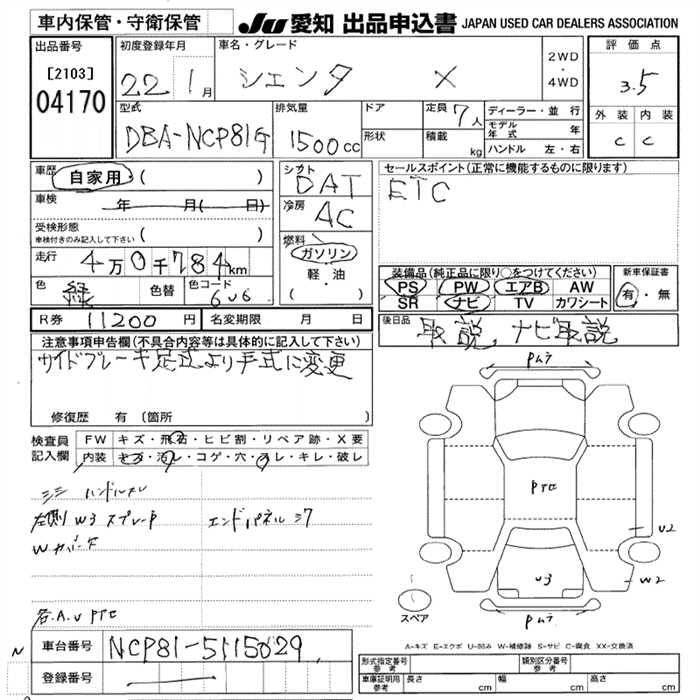 車内保管・守衛保管
JU 愛知 出品申込書 JAPAN USED CAR DEALERS ASSOCIATION
出品番号
[2103]
04170
初度登録年月
22 1月
車名・グレード
シエンタ X
2WD
・
4WD
評価点
3.5
外装 内装
C C
型式
DBA-NCP81G
排気量
1500cc
ドア
形状
定員 7人
積載 kg
ディーラー・並行
モデル年式 年
ハンドル 左・右
車歴 自家用 ( )
車検 年 月( 日)
受検形態
車検付きのみ記入して下さい ( )
走行 4万0千784km
色 緑 色替 色コード 6V6
シフト DAT
冷房 AC
燃料
ガソリン
軽・油
( )
セールスポイント(正常に機能するものに限ります)
ETC
装備品(純正品に限り○をつけてください)
PS PW エアB AW
SR ナビ TV カワシート
新車保証書
有・無
R券 11200円 名変期限 月 日
後日品 取説 ナビ取説
注意事項申告欄(不具合内容等は具体的に記入して下さい)
サイドブレーキ足式より手式に変更
修復歴 有 (箇所 )
検査員記入欄
FW キズ・飛石・ヒビ割・リペア跡・X要
内装 キズ・汚レ・コゲ・穴・スレ・キレ・破レ
ハンドルスレ
左側 W3 スプレー P
エンドパネル
各.A.U PTE
Pムラ
PTE
U2
U3
W2
Pムラ
スペア
A-キズ E-エクボ U-凹み W-補修跡 S-サビ C-腐食 XX-交換済
N
車台番号 NCP81-5115029
登録番号
形式指定番号 参考
類別区分番号 参考
車庫証明用 参考 長さ cm 幅 cm 高さ cm